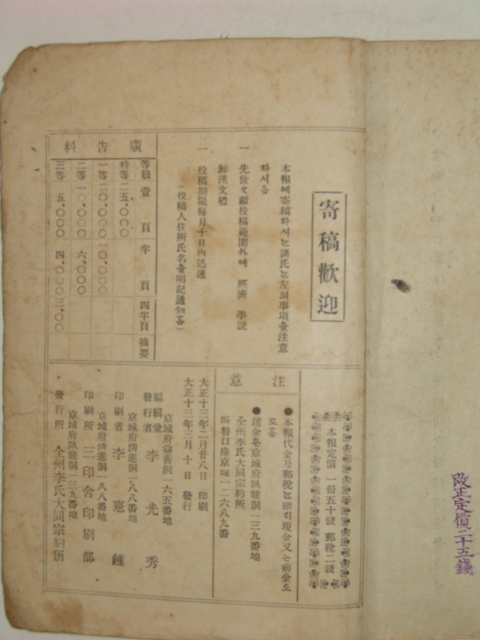 改正定價二十五錢
寄稿歡迎
本報에寄稿하시는諸氏는左의事項을注意
하시옵
一 先世文獻投稿範圍外에 經濟 學說
鮮漢文體
一 投稿期限每月十日內迅速
(投稿人住所氏名을明記通知홈)
廣告料
等級 壹頁 半頁 四半頁 摘要
特等 二五,〇〇〇
一等 二〇,〇〇〇 一〇,〇〇〇
二等 一〇,〇〇〇 六,〇〇〇
三等 五,〇〇〇 四,〇〇〇 三,〇〇
本報定價 一冊五十錢 郵稅二錢
注意
●本報代金及郵稅는總히現金又는前金으
로홈
●送金은京城府臥龍洞一三九番地
全州李氏大同宗約所
振替口座京城一二六八九番
大正十三年二月廿八日 印刷
大正十三年三月十日 發行
京城府益善洞一六五番地
編輯兼
發行者 李光秀
京城府淸進洞一八八番地
印刷者 李鍾
京城府淸進洞一八八番地
印刷所 三印舍印刷部
京城府臥龍洞一三九番地
發行所 全州李氏大同宗約所